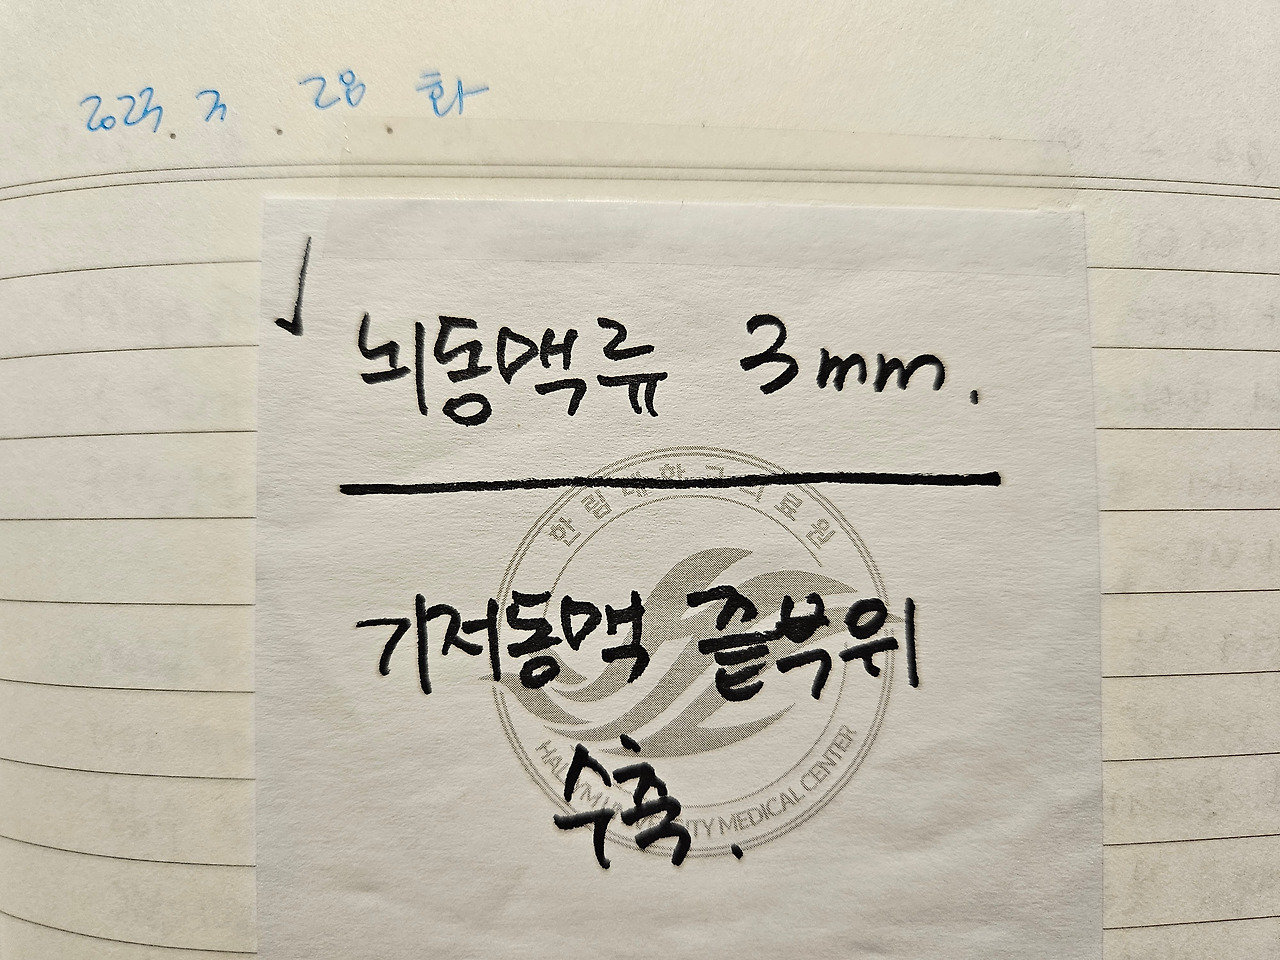 2023. 3. 28. 화
뇌동맥류 3mm.
한림대학교의료원
기저동맥 끝부위
수축.
HALLYM UNIVERSITY MEDICAL CENTER